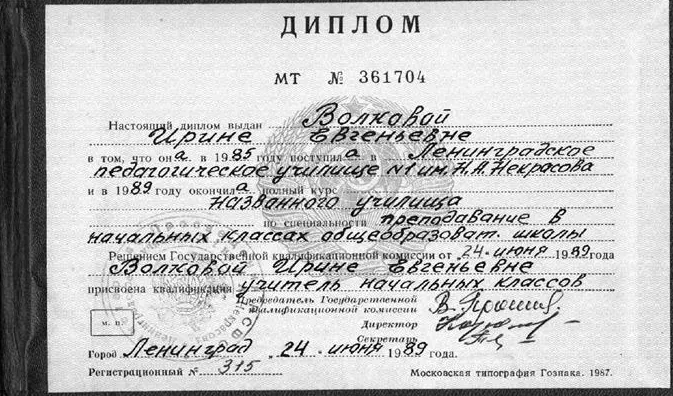 ДИПЛОМ
МТ № 361704
Настоящий диплом выдан Волковой
Ирине Евгеньевне
в том, что она в 1985 году поступила в Ленинградское
педагогическое училище №1 им. Н.А. Некрасова
и в 1989 году окончила полный курс
названного училища
по специальности преподавание в
начальных классах общеобразоват. школы
Решением Государственной квалификационной комиссии от 24 июня 1989 года
Волковой Ирине Евгеньевне
присвоена квалификация учитель начальных классов
Председатель Государственной
квалификационной комиссии
Директор
Секретарь
м. п.
Город Ленинград 24 июня 1989 года.
Регистрационный № 315
Московская типография Гознака. 1987.